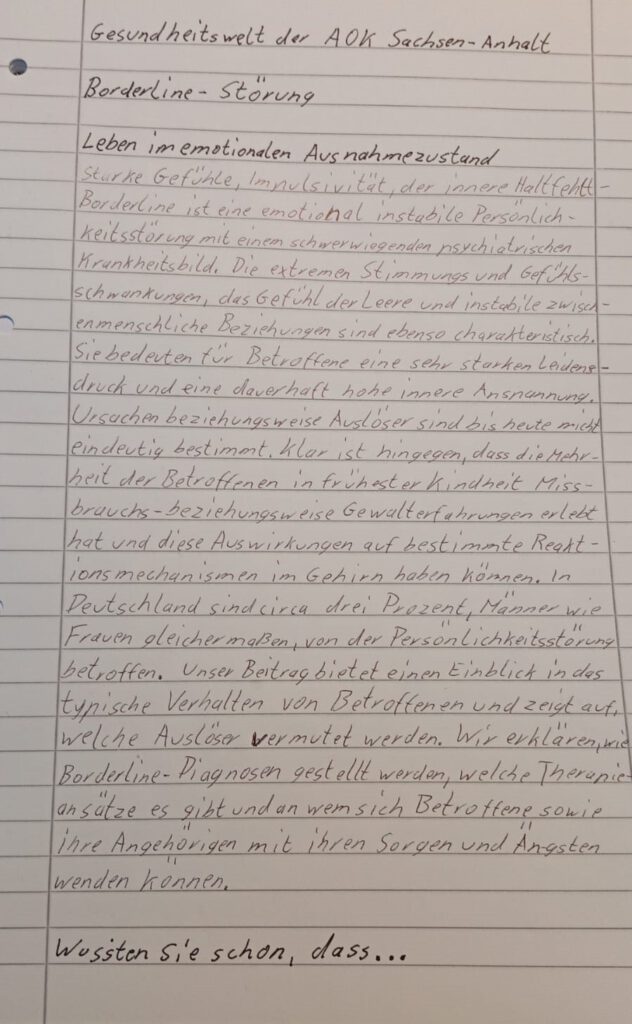 Gesundheitswelt der AOK Sachsen-Anhalt
Borderline-Störung
Leben im emotionalen Ausnahmezustand
Starke Gefühle, Impulsivität, der innere Halt fehlt -
Borderline ist eine emotional instabile Persönlich-
keitsstörung mit einem schwerwiegenden psychiatrischen
Krankheitsbild. Die extremen Stimmungs und Gefühls-
schwankungen, das Gefühl der Leere und instabile zwisch-
enmenschliche Beziehungen sind ebenso charakteristisch.
Sie bedeuten für Betroffene eine sehr starken Leidens-
druck und eine dauerhaft hohe innere Anspannung.
Ursachen beziehungsweise Auslöser sind bis heute nicht
eindeutig bestimmt. Klar ist hingegen, dass die Mehr-
heit der Betroffenen in frühester Kindheit Miss-
brauchs-beziehungsweise Gewalterfahrungen erlebt
hat und diese Auswirkungen auf bestimmte Reakt-
ionsmechanismen im Gehirn haben können. In
Deutschland sind circa drei Prozent, Männer wie
Frauen gleichermaßen, von der Persönlichkeitsstörung
betroffen. Unser Beitrag bietet einen Einblick in das
typische Verhalten von Betroffenen und zeigt auf,
welche Auslöser vermutet werden. Wir erklären, wie
Borderline-Diagnosen gestellt werden, welche Therapie-
ansätze es gibt und an wem sich Betroffene sowie
ihre Angehörigen mit ihren Sorgen und Ängsten
wenden können.
Wussten Sie schon, dass...